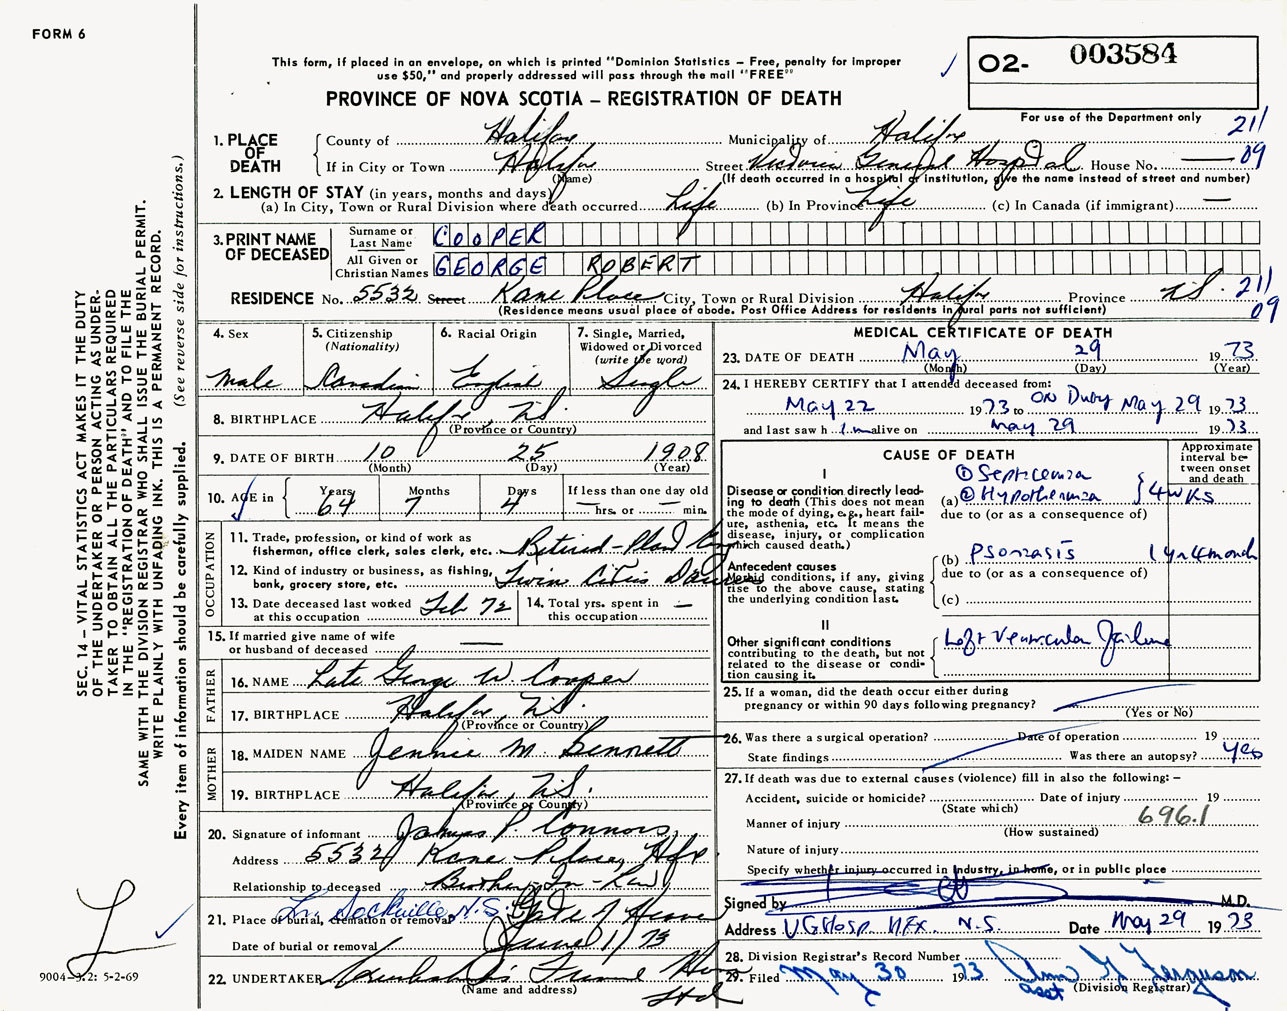 FORM 6
This form, if placed in an envelope, on which is printed "Dominion Statistics – Free, penalty for improper
use $50," and properly addressed will pass through the mail "FREE"
PROVINCE OF NOVA SCOTIA – REGISTRATION OF DEATH
O2- 003584
For use of the Department only
211
09
1. PLACE OF DEATH
County of Halifax Municipality of Halifax
If in City or Town Halifax Street Victoria General Hospital House No. —
(Name) (If death occurred in a hospital or institution, give the name instead of street and number)
2. LENGTH OF STAY (in years, months and days)
(a) In City, Town or Rural Division where death occurred Life (b) In Province Life (c) In Canada (if immigrant) —
3. PRINT NAME OF DECEASED
Surname or Last Name COOPER
All Given or Christian Names GEORGE ROBERT
RESIDENCE No. 5532 Street Kane Place City, Town or Rural Division Halifax Province N.S.
211
09
(Residence means usual place of abode. Post Office Address for residents in rural parts not sufficient)
4. Sex Male
5. Citizenship (Nationality) Canadian
6. Racial Origin English
7. Single, Married, Widowed or Divorced (write the word) Single
8. BIRTHPLACE Halifax, N.S.
(Province or Country)
9. DATE OF BIRTH 10 25 1908
(Month) (Day) (Year)
10. AGE in Years 64 Months 7 Days 4 If less than one day old — hrs. or — min.
OCCUPATION
11. Trade, profession, or kind of work as
fisherman, office clerk, sales clerk, etc. Retired-Plant
12. Kind of industry or business, as fishing,
bank, grocery store, etc. Twin Cities
13. Date deceased last worked
at this occupation Feb 72
14. Total yrs. spent in
this occupation —
15. If married give name of wife
or husband of deceased —
FATHER
16. NAME Late George W. Cooper
17. BIRTHPLACE Halifax, N.S.
(Province or Country)
MOTHER
18. MAIDEN NAME Jennie M Bennett
19. BIRTHPLACE Halifax, N.S.
(Province or Country)
20. Signature of informant James P. Connors
Address 5532 Kane Place, Hfx
Relationship to deceased Brother-In-Law
21. Place of burial, cremation or removal Lr. Sackville N.S. Gate of Heaven
Date of burial or removal June 1/73
22. UNDERTAKER Funeral Home
Ltd
(Name and address)
MEDICAL CERTIFICATE OF DEATH
23. DATE OF DEATH May 29 1973
(Month) (Day) (Year)
24. I HEREBY CERTIFY that I attended deceased from:
May 22 1973 to ON Duty May 29 1973
and last saw h im alive on May 29 1973
CAUSE OF DEATH
Approximate interval between onset and death
I
Disease or condition directly leading
to death (This does not mean
the mode of dying, e.g., heart failure,
asthenia, etc. It means the
disease, injury, or complication
which caused death.)
(a) ① Septicemia
② Hypothermia } 4 wks
due to (or as a consequence of)
Antecedent causes
Morbid conditions, if any, giving
rise to the above cause, stating
the underlying condition last.
(b) Psoriasis 1 yr 4 month
due to (or as a consequence of)
(c)
II
Other significant conditions
contributing to the death, but not
related to the disease or condition
causing it.
Left Ventricular Failure
25. If a woman, did the death occur either during
pregnancy or within 90 days following pregnancy?
(Yes or No)
26. Was there a surgical operation? Date of operation 19
State findings Was there an autopsy? yes
27. If death was due to external causes (violence) fill in also the following:–
Accident, suicide or homicide? Date of injury 19
(State which)
Manner of injury 696.1
(How sustained)
Nature of injury
Specify whether injury occurred in industry, in home, or in public place
Signed by M.D.
Address V.G. Hosp. Hfx. N.S. Date May 29 1973
28. Division Registrar's Record Number
29. Filed May 30 1973 Ferguson
asst (Division Registrar)
SEC. 14 – VITAL STATISTICS ACT MAKES IT THE DUTY
OF THE UNDERTAKER OR PERSON ACTING AS UNDERTAKER
TO OBTAIN ALL THE PARTICULARS REQUIRED
IN THE "REGISTRATION OF DEATH" AND TO FILE THE
SAME WITH THE DIVISION REGISTRAR WHO SHALL ISSUE THE BURIAL PERMIT.
WRITE PLAINLY WITH UNFADING INK. THIS IS A PERMANENT RECORD.
Every item of information should be carefully supplied. (See reverse side for instructions.)
9004-3.2: 5-2-69